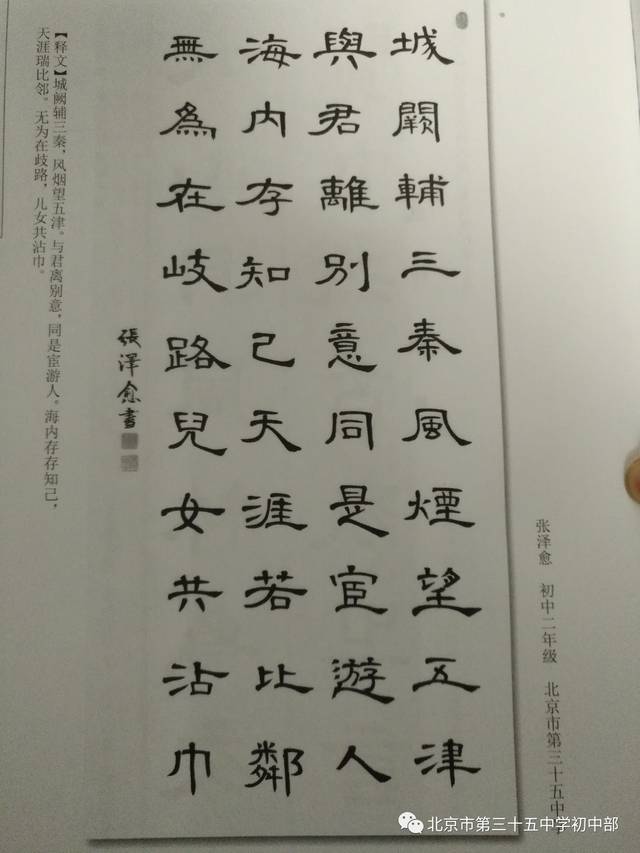 张泽愈 初中二年级 北京市第三十五中学
城闕輔三秦風煙望五津
與君離別意同是宦遊人
海内存知己天涯若比鄰
無為在岐路兒女共沾巾
張澤愈書
【释文】城阙辅三秦，风烟望五津。与君离别意，同是宦游人。海内存存知己，
天涯瑞比邻。无为在歧路，儿女共沾巾。
北京市第三十五中学初中部